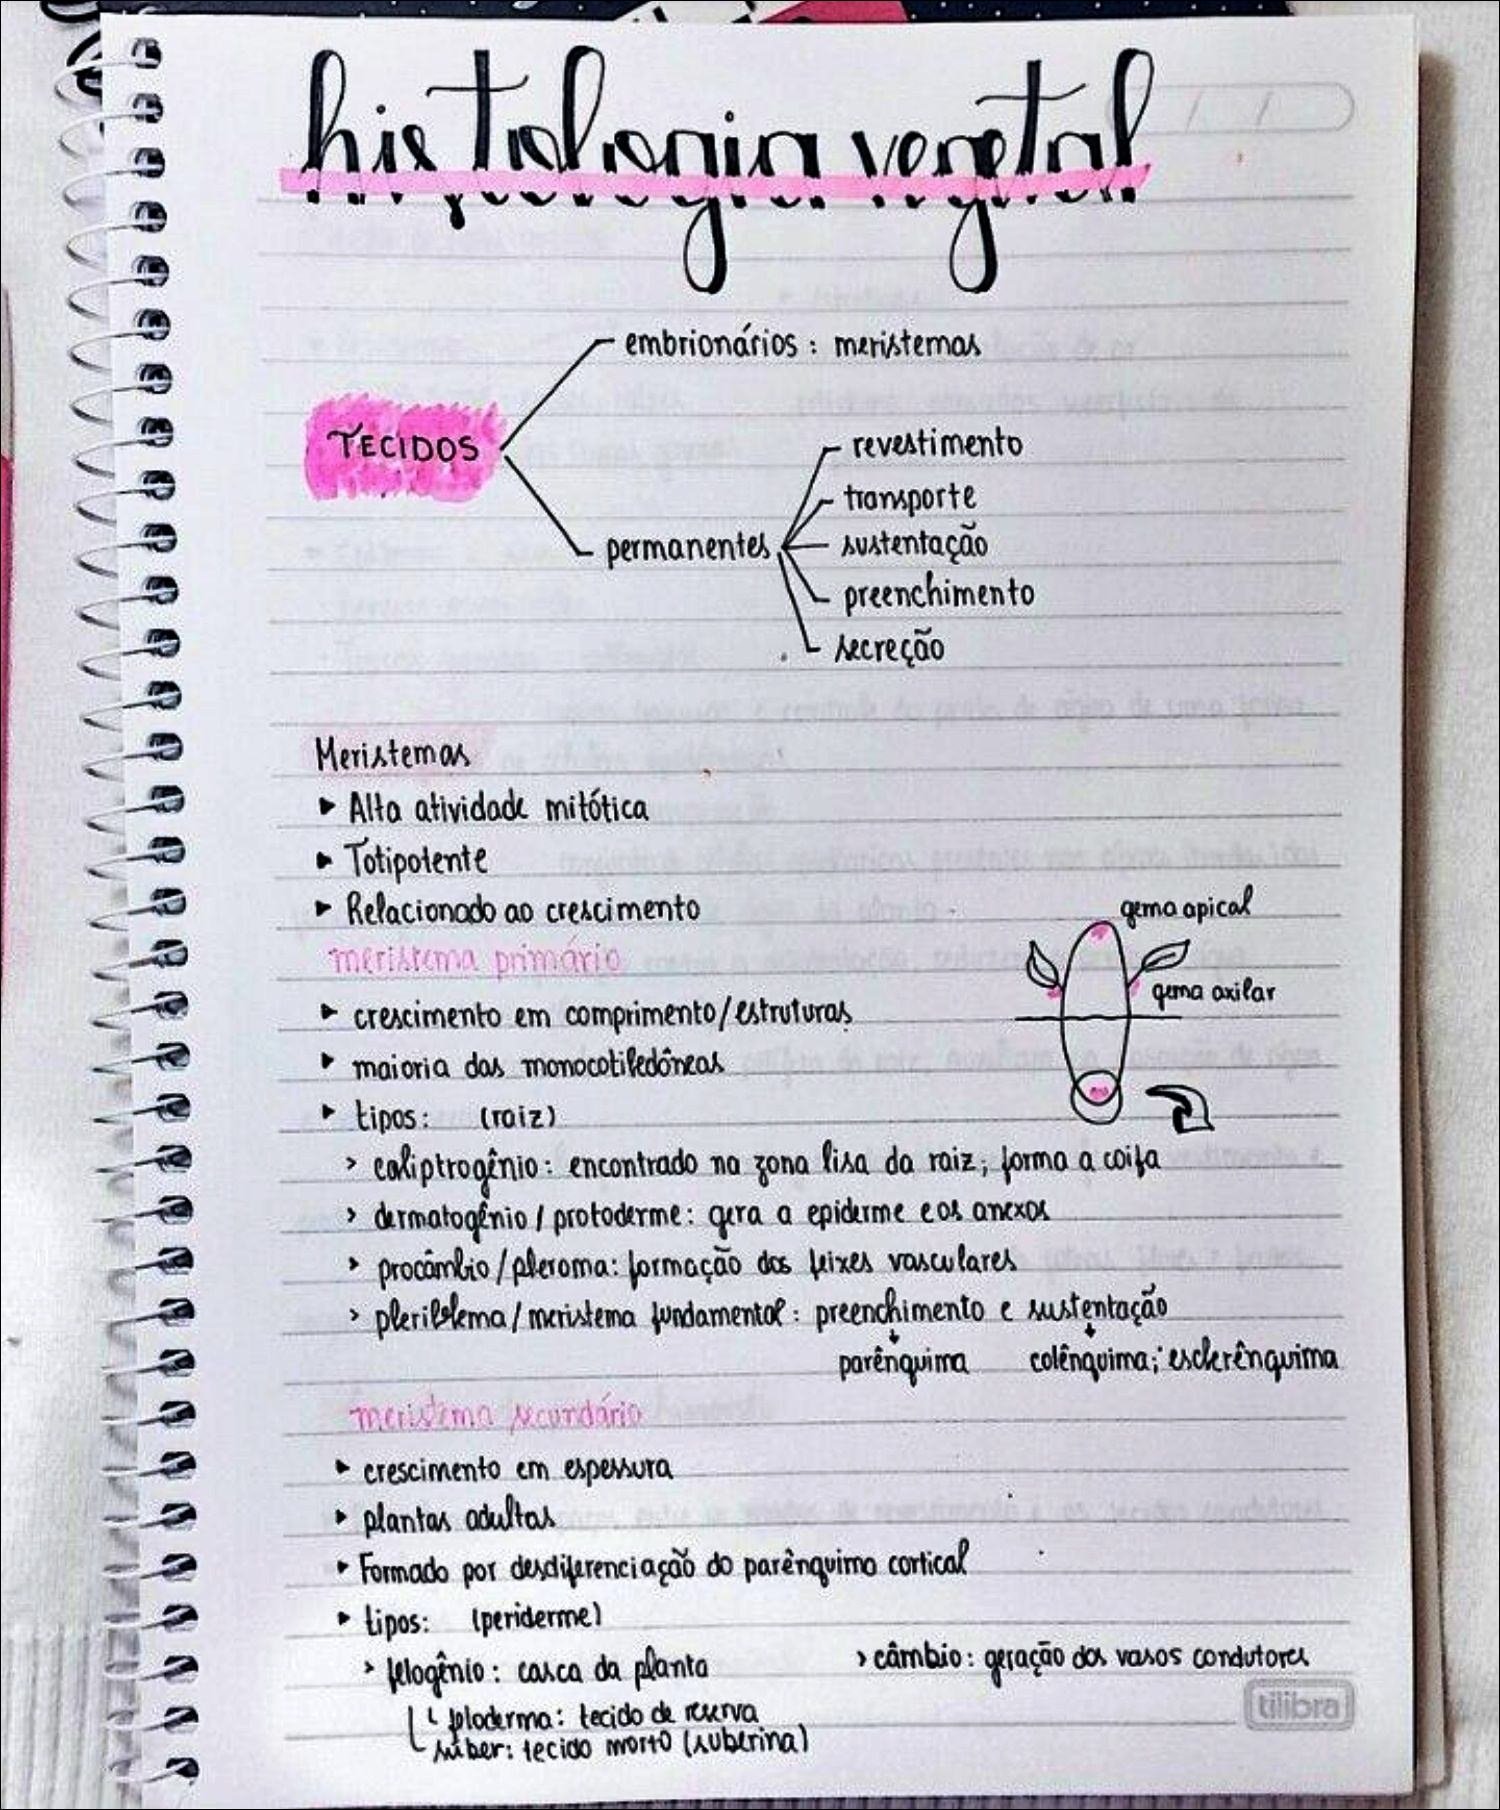 histologia vegetal
embrionários : meristemas
TECIDOS
revestimento
transporte
permanentes
sustentação
preenchimento
secreção
Meristemas
▸ Alta atividade mitótica
▸ Totipotente
▸ Relacionado ao crescimento
gema apical
meristema primário
gema axilar
▸ crescimento em comprimento/estruturas
▸ maioria das monocotiledôneas
▸ tipos: (raiz)
> caliptrogênio : encontrado na zona lisa da raiz; forma a coifa
> dermatogênio / protoderme: gera a epiderme e os anexos
> procâmbio / pleroma: formação dos feixes vasculares
> periblema / meristema fundamental : preenchimento e sustentação
parênquima colênquima; esclerênquima
meristema secundário
▸ crescimento em espessura
▸ plantas adultas
▸ Formado por desdiferenciação do parênquima cortical
▸ tipos: (periderme)
> felogênio : casca da planta > câmbio : geração dos vasos condutores
feloderma: tecido de reserva
súber: tecido morto (suberina)
tilibra